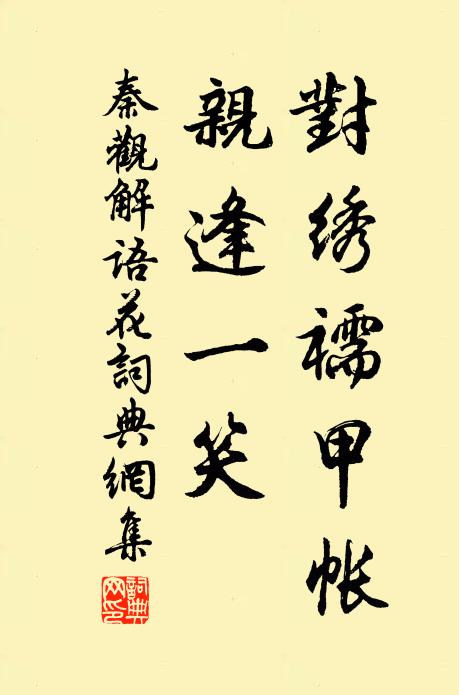 對綉襦甲帐
親逢一笑
秦觀解語花詞典網集
詞典网印